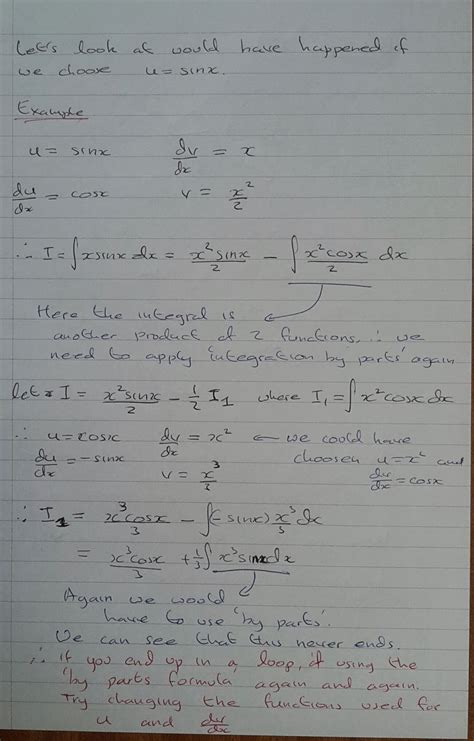 Let's look at would have happened if
we choose u = sinx.
Example
u = sinx dv/dx = x
du/dx = cosx v = x²/2
∴ I = ∫xsinx dx = x²sinx/2 - ∫x²cosx/2 dx
Here the integral is
another product of 2 functions, ∴ we
need to apply 'integration by parts' again
let I = x²sinx/2 - 1/2 I₁ where I₁ = ∫x²cosxdx
∴ u = cosx dv/dx = x² ← we could have
du/dx = -sinx v = x³/3 choosen u = x² and
dv/dx = cosx
∴ I₁ = x³cosx/3 - ∫(-sinx) x³/3 dx
= x³cosx/3 + 1/3∫x³sinxdx
Again we would
have to use 'by parts'.
We can see that this never ends.
∴ if you end up in a loop, if using the
'by parts formula' again and again.
Try changing the functions used for
u and dv/dx